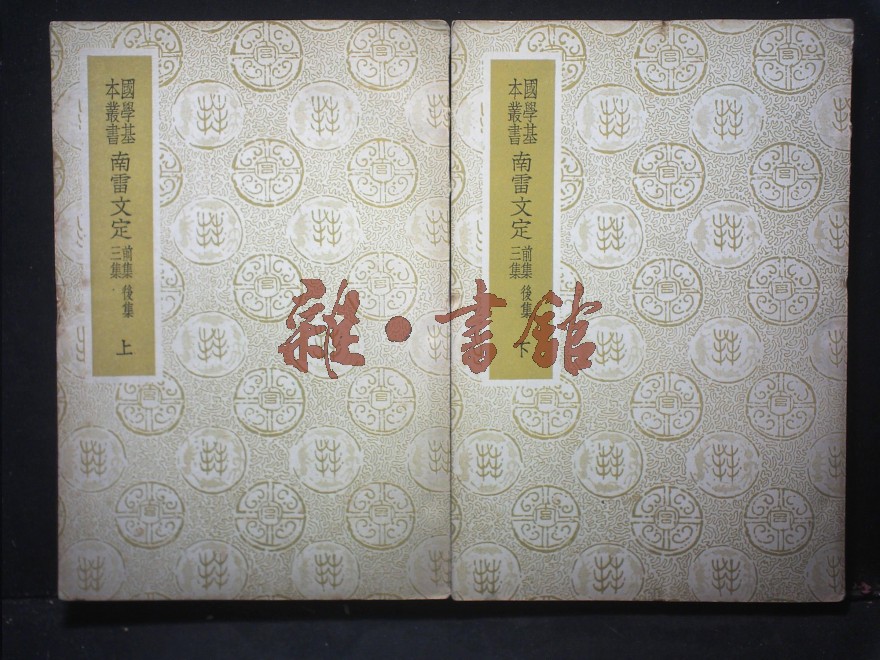 國學基
本叢書
南雷文定
前集
三集
後集
上
國學基
本叢書
南雷文定
前集
三集
後集
下
雜·書館